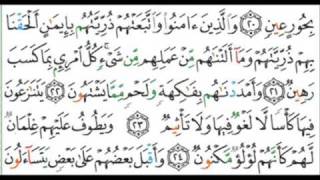 بِحُورٍ عِينٍ ﴿٢٠﴾ وَالَّذِينَ ءَامَنُوا وَاتَّبَعَتْهُمْ ذُرِّيَّتُهُم بِإِيمَانٍ أَلْحَقْنَا
بِهِمْ ذُرِّيَّتَهُمْ وَمَا أَلَتْنَاهُم مِّنْ عَمَلِهِم مِّن شَيْءٍ كُلُّ امْرِئٍ بِمَا كَسَبَ
رَهِينٌ ﴿٢١﴾ وَأَمْدَدْنَاهُم بِفَاكِهَةٍ وَلَحْمٍ مِّمَّا يَشْتَهُونَ ﴿٢٢﴾ يَتَنَازَعُونَ
فِيهَا كَأْسًا لَّا لَغْوٌ فِيهَا وَلَا تَأْثِيمٌ ﴿٢٣﴾ وَيَطُوفُ عَلَيْهِمْ غِلْمَانٌ
لَّهُمْ كَأَنَّهُمْ لُؤْلُؤٌ مَّكْنُونٌ ﴿٢٤﴾ وَأَقْبَلَ بَعْضُهُمْ عَلَىٰ بَعْضٍ يَتَسَاءَلُونَ